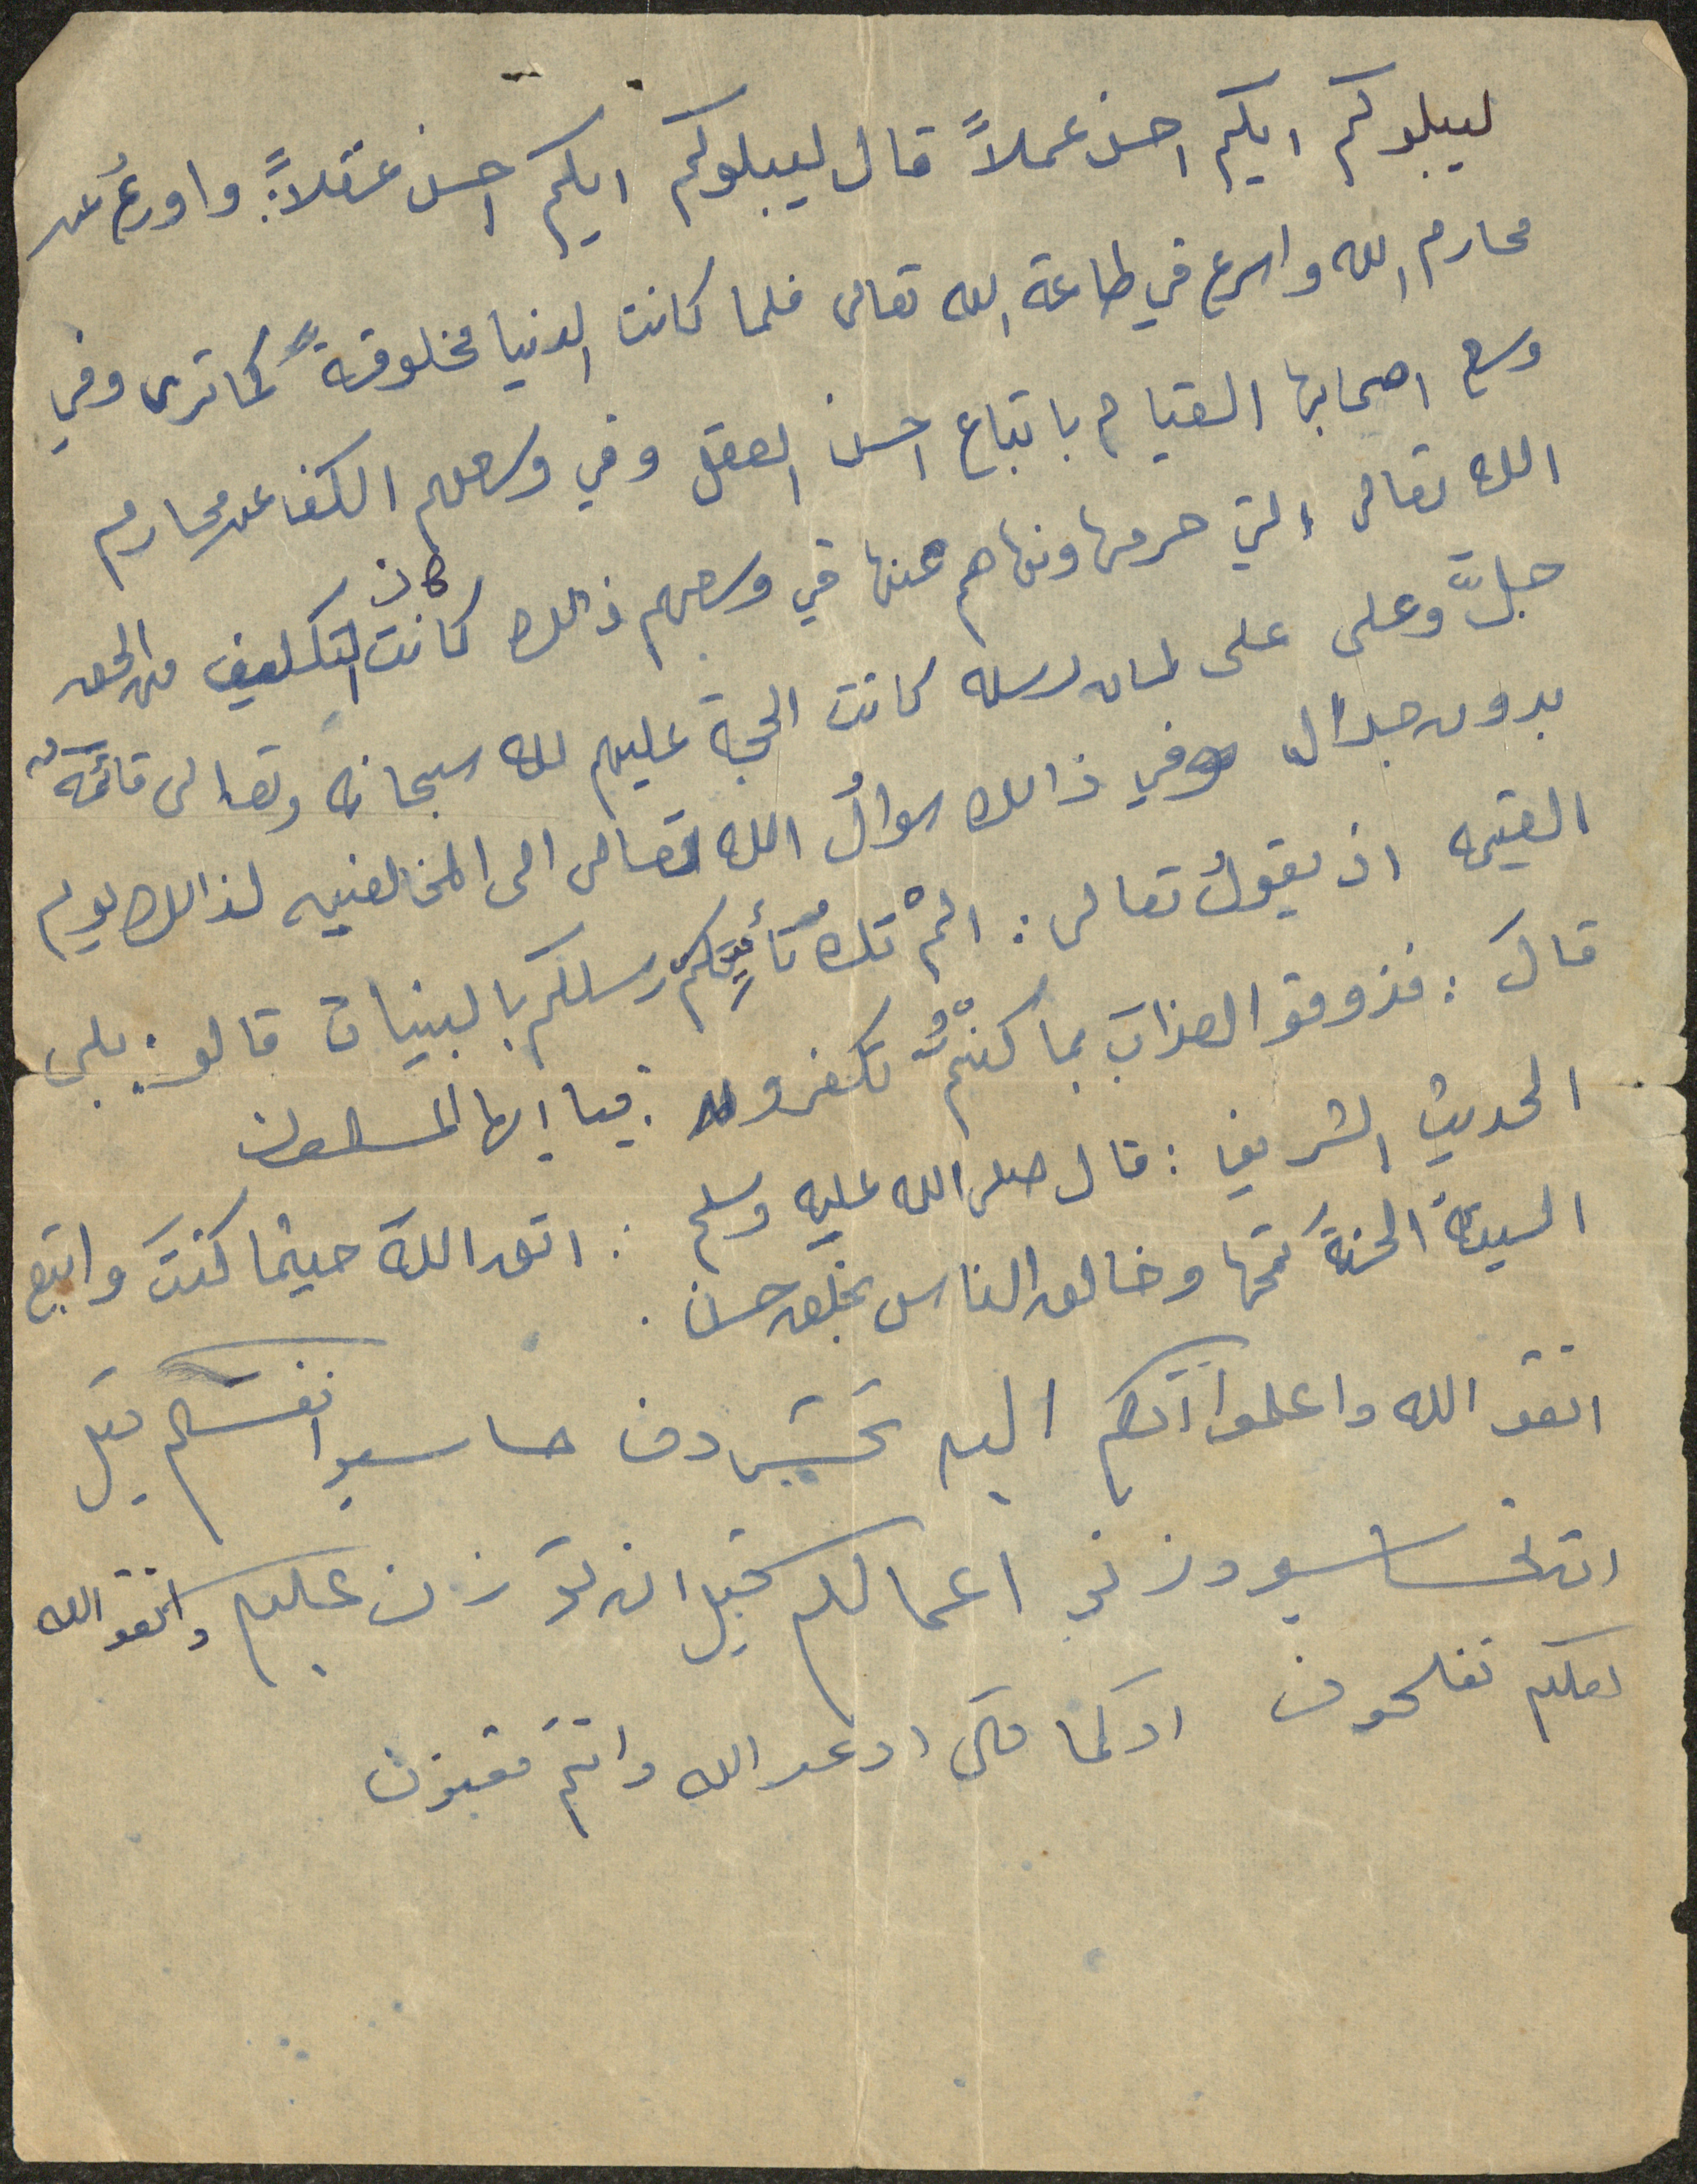 ليبلوكم ايكم احسن عملاً قال ليبلوكم ايكم احسن عقلاً: واورعُ عن
محارم الله واسرع في طاعة الله تعالى فلما كانت الدنيا مخلوقةً كما ترى وفي
وسع اصحابها القيام باتباع احسن العقل وفي وسعهم الكف عن محارم
الله تعالى التي حرمها ونهاهم عنها في وسعهم ذالك كانت كان التكليف من الحق
جلَّ وعلى على لسان رسله كانت الحجة عليهم لله سبحانه وتعالى قائمةٌ
بدون جدال وفي ذالك سوالُ الله تعالى الى المخالفين لذالك يوم
القيمه اذ يقولُ تعالى: المْ تكُ تأتِيكمْ رسلكم بالبينات قالو: بلى
قالَ: فذوقو العذابَ بما كنتُمْ تكفرون: فيا ايها المسلمون
الحديث الشريف: قال صلى الله عليه وسلم: اتق اللهَ حيثما كنتَ واتبع
السيئةَ الحسنةَ تمحها وخالق الناس بخلق حسن.
اتقو الله واعلموا انكم اليه تحشرون حاسبو انفسكم قبل
ان تحاسبو وزنو اعمالكم قبل ان توزن عليكم واتقو الله
لعلكم تفلحون اوكما قال ادعو الله وانتم موقنون